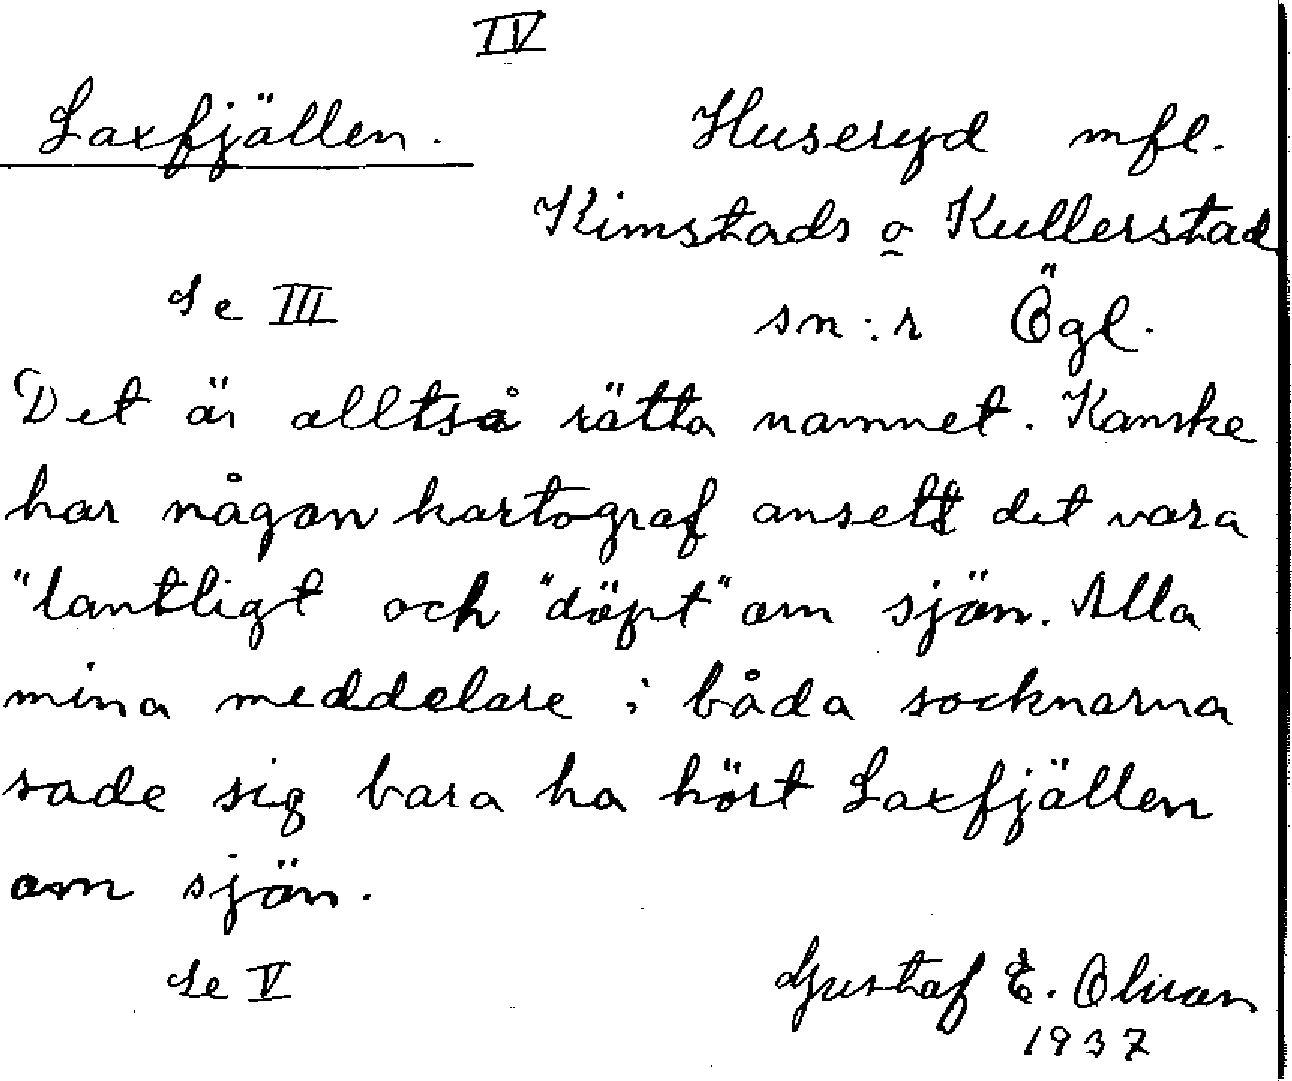 IV
Laxfjällen.
Huseryd mfl.
Kimstads o Kullerstad
Se III
sn:r Ögl.
Det är alltså rätta namnet. Kanske
har någon kartograf ansett det vara
"lantligt och "döpt" om sjön. Alla
mina meddelare i båda socknarna
sade sig bara ha hört Laxfjällen
om sjön.
Se V
Gustaf E. Olsson
1937